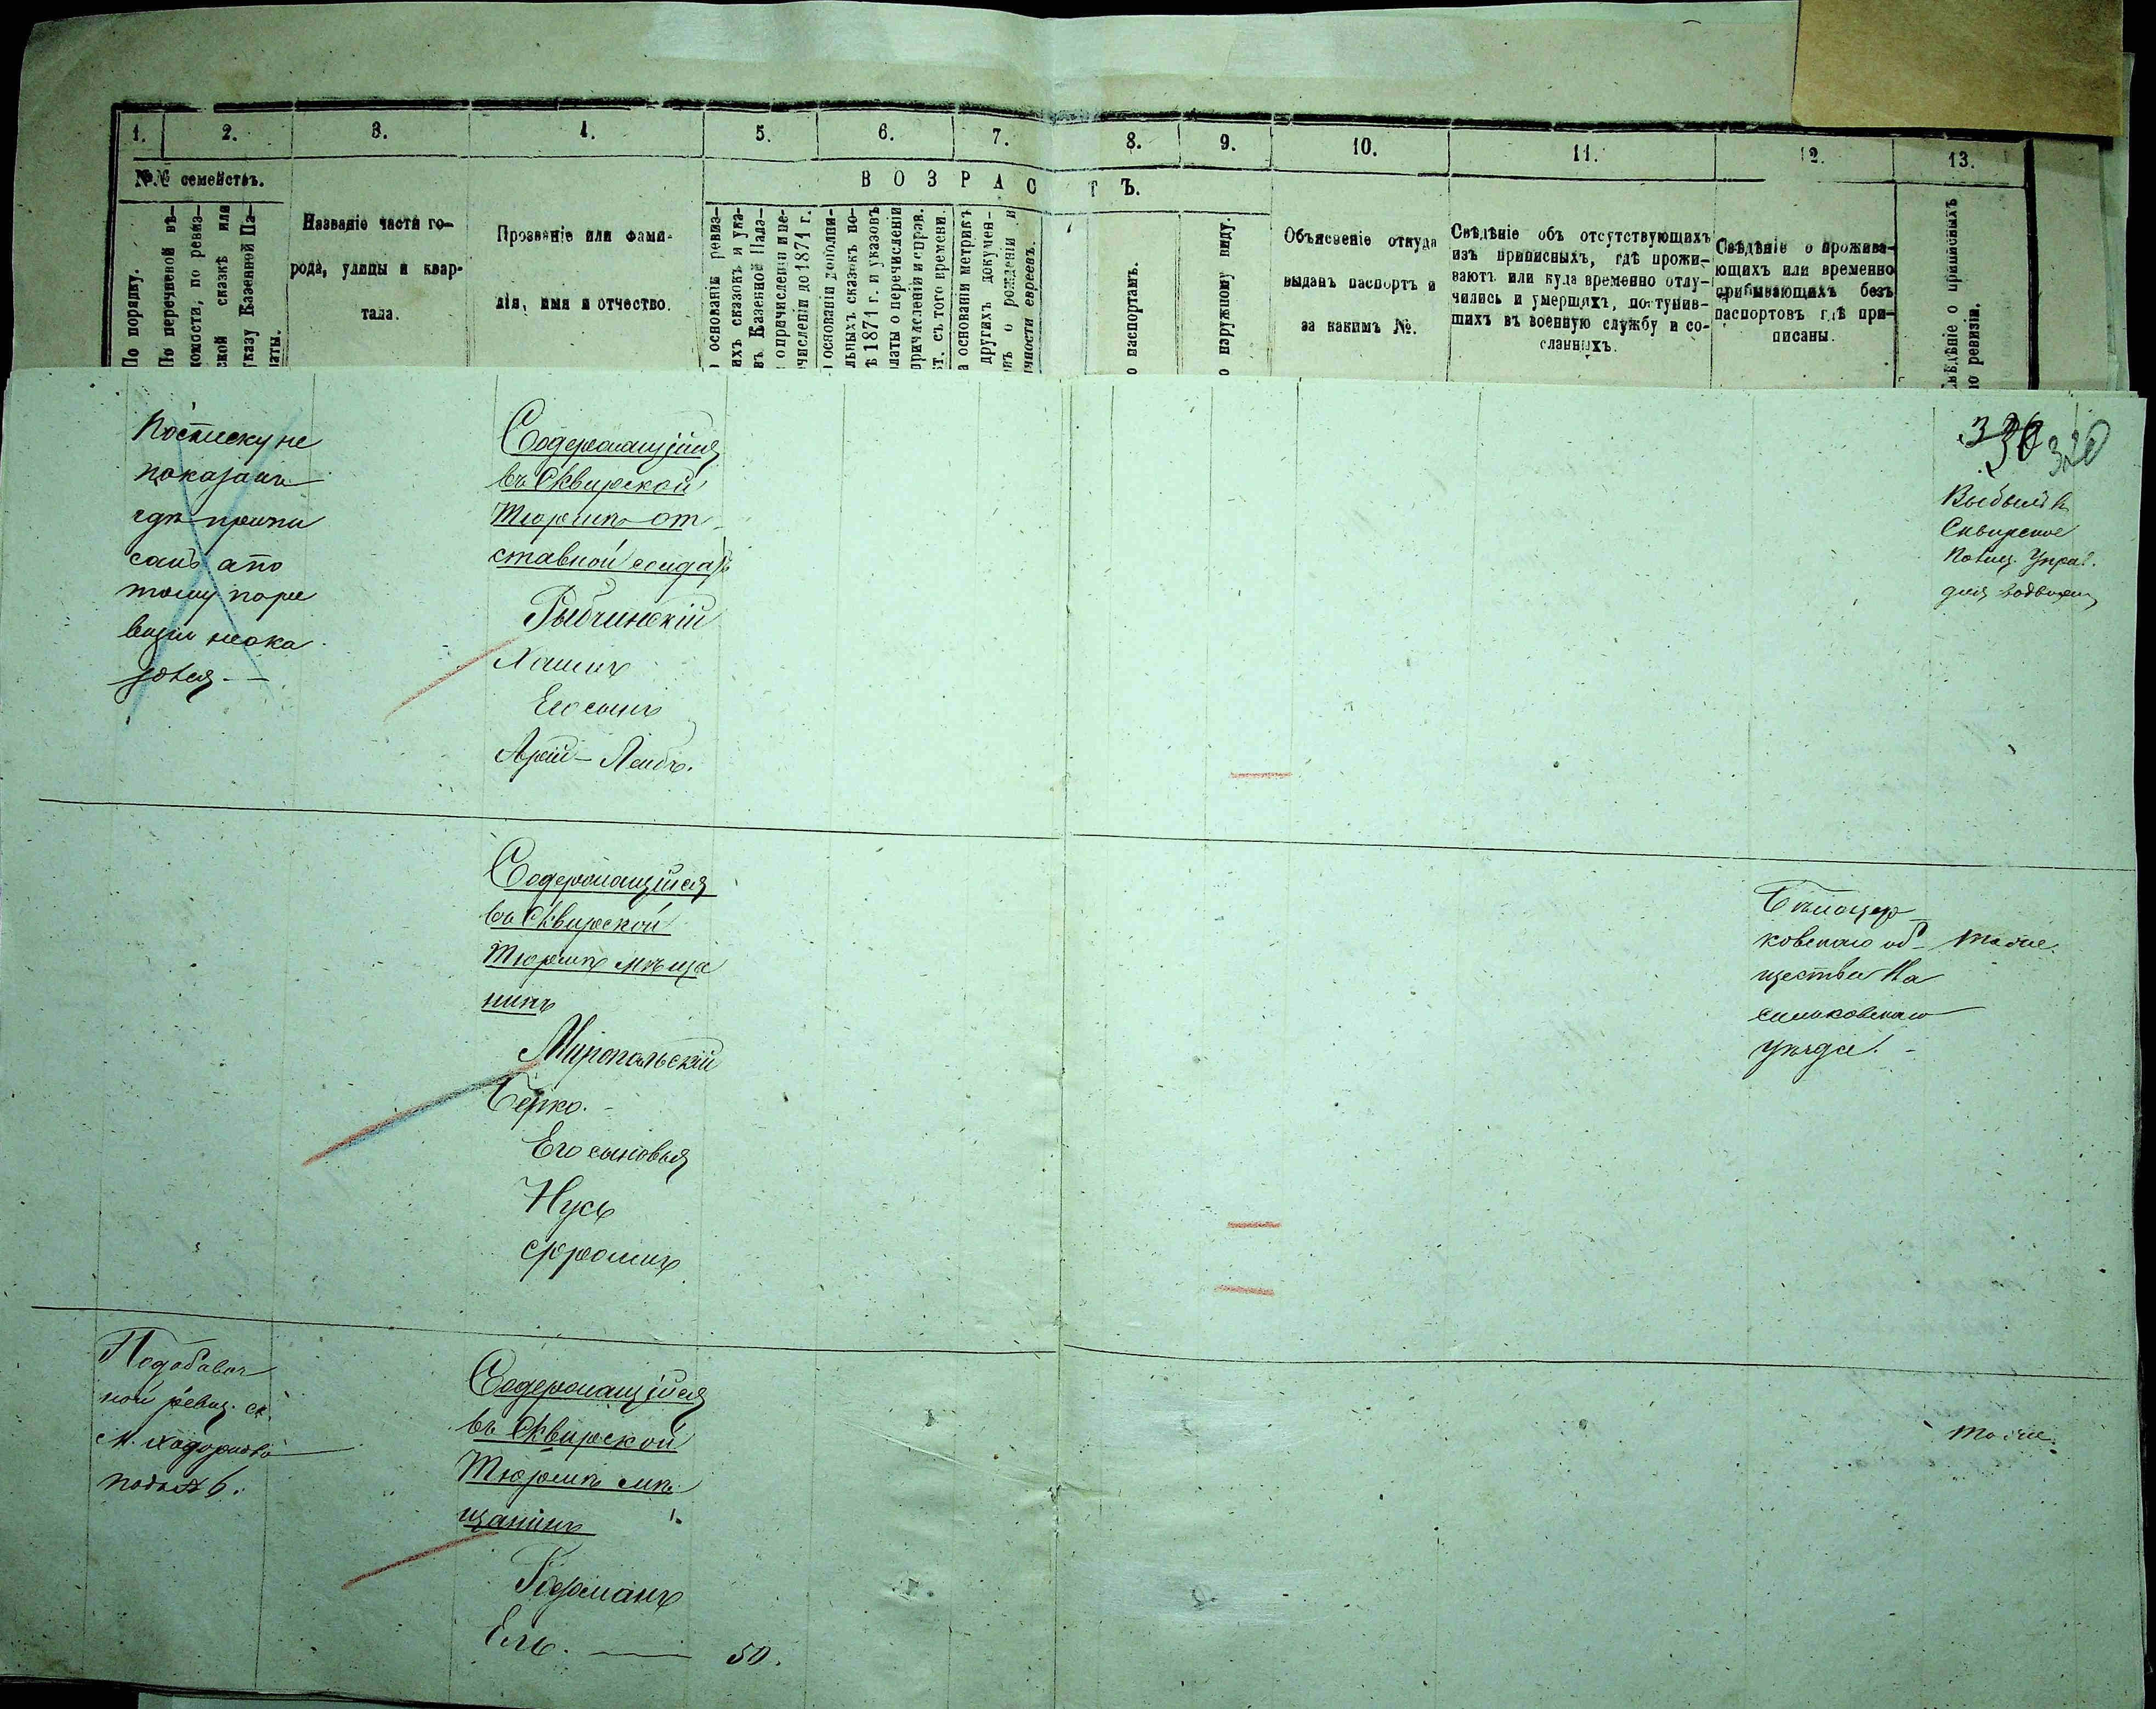 1. 2. 3. 4. 5. 6. 7. 8. 9. 10. 11. 12. 13.
№№ семействъ.
ВОЗРАСТЪ.
По порядку.
По перечневой вѣ-
домости, по ревиз-
ской сказкѣ или
указу Казенной Па-
латы.
Названіе части го-
рода, улицы и квар-
тала.
Прозваніе или фами-
лія, имя и отчество.
основаніи ревиз-
ихъ сказокъ и ука-
въ Казенной Пала-
о причисленіи и пе-
численіи до 1871 г.
основаніи дополни-
льныхъ сказокъ по-
ѣ 1871 г. и указовъ
латы о перечисленіи
причисленіи и справ.
ст. съ того времени.
а основаніи метрикъ
другихъ докумен-
въ о рожденіи и
ичности евреевъ.
о паспортамъ.
о наружному виду.
Объясненіе откуда
выданъ паспортъ и
за какимъ №.
Свѣдѣніе объ отсутствующихъ
изъ приписныхъ, гдѣ прожи-
ваютъ или куда временно отлу-
чились и умершихъ, поступив-
шихъ въ военную службу и со-
сланныхъ.
Свѣдѣніе о прожива-
ющихъ или временно
прибывающихъ безъ
паспортовъ гдѣ при-
писаны.
вѣдѣніе о приписныхъ
по ревизіи.
По списку не
показанъ
гдѣ припи
санъ а по
тому поре
визіи неока
зался. —
Содержащійся
въ Сквирской
Тюрьмѣ от
ставной солдатъ
Рыбчинскій
Хаимъ
Его сынъ
Арій - Лейбъ.
320
Выбылъ в
Сквирское
Полиц. Управ.
для водворен
Содержащійся
въ Сквирской
Тюрьмѣ мѣща
нинъ
Миропольскій
Берко. -
Его сыновья
Нусь
Ефроимъ
Бѣлоцер
ковскаго об-
щества Ва
сильковскаго
уѣзда. -
тоже.
Подобавоч
ной ревиз. ск.
М. Ходоркова
подъ № 6.
Содержащійся
въ Сквирской
Тюрьмѣ мѣ
щанинъ
Германъ
Ель. — 50.
тоже.